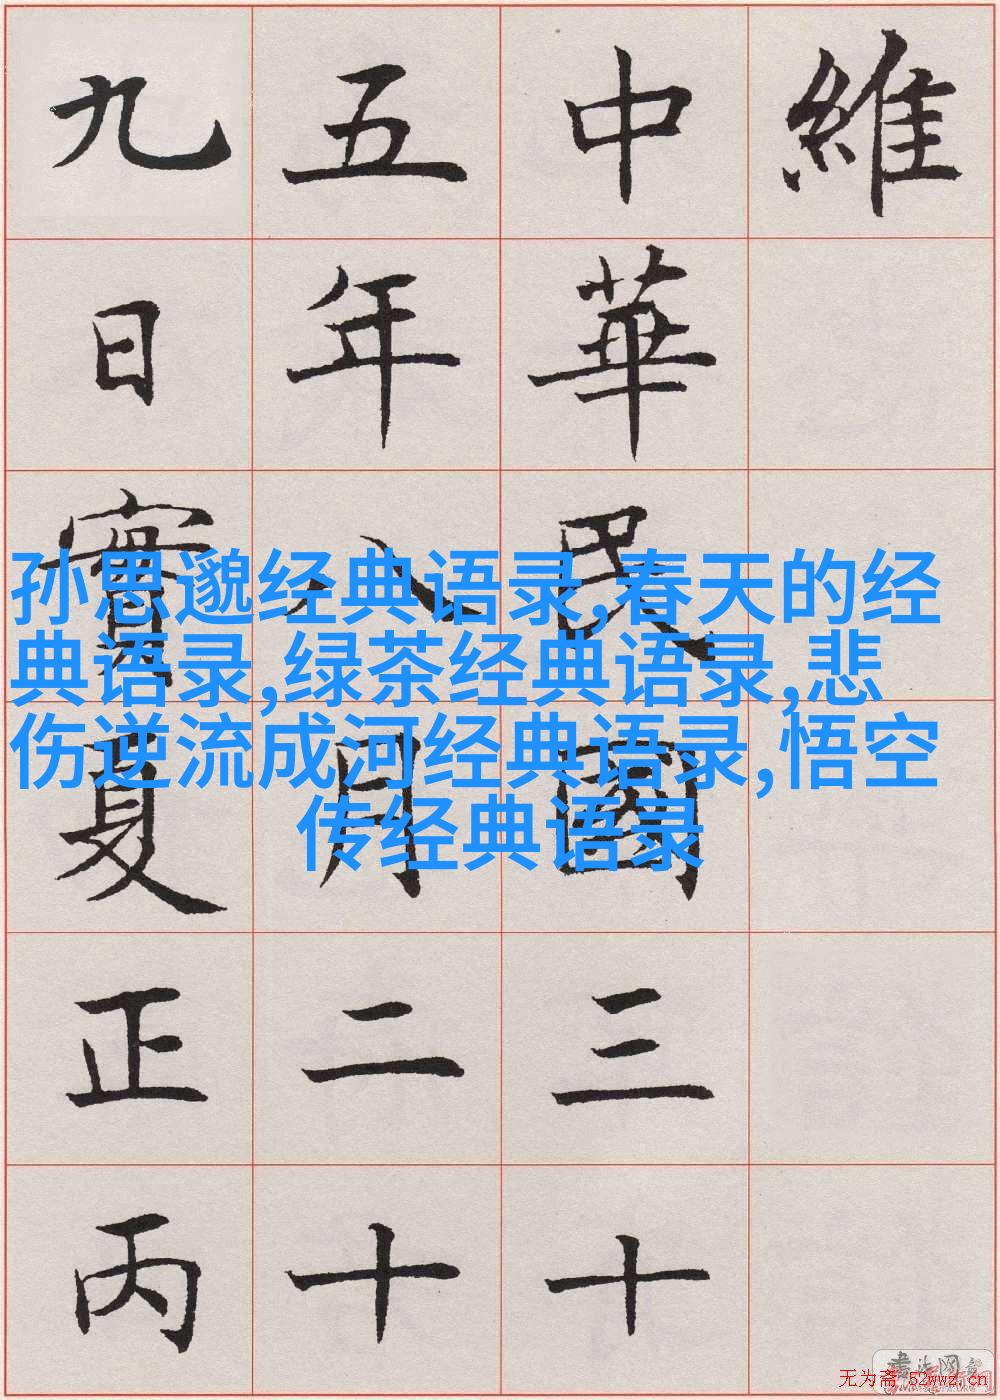 維
中華民國三十
五年八月二十
九日實夏正丙
孙思邈经典语录,春天的经
典语录,绿茶经典语录,悲
伤逆流成河经典语录,悟空
传经典语录
无为斋 52wwz.cn